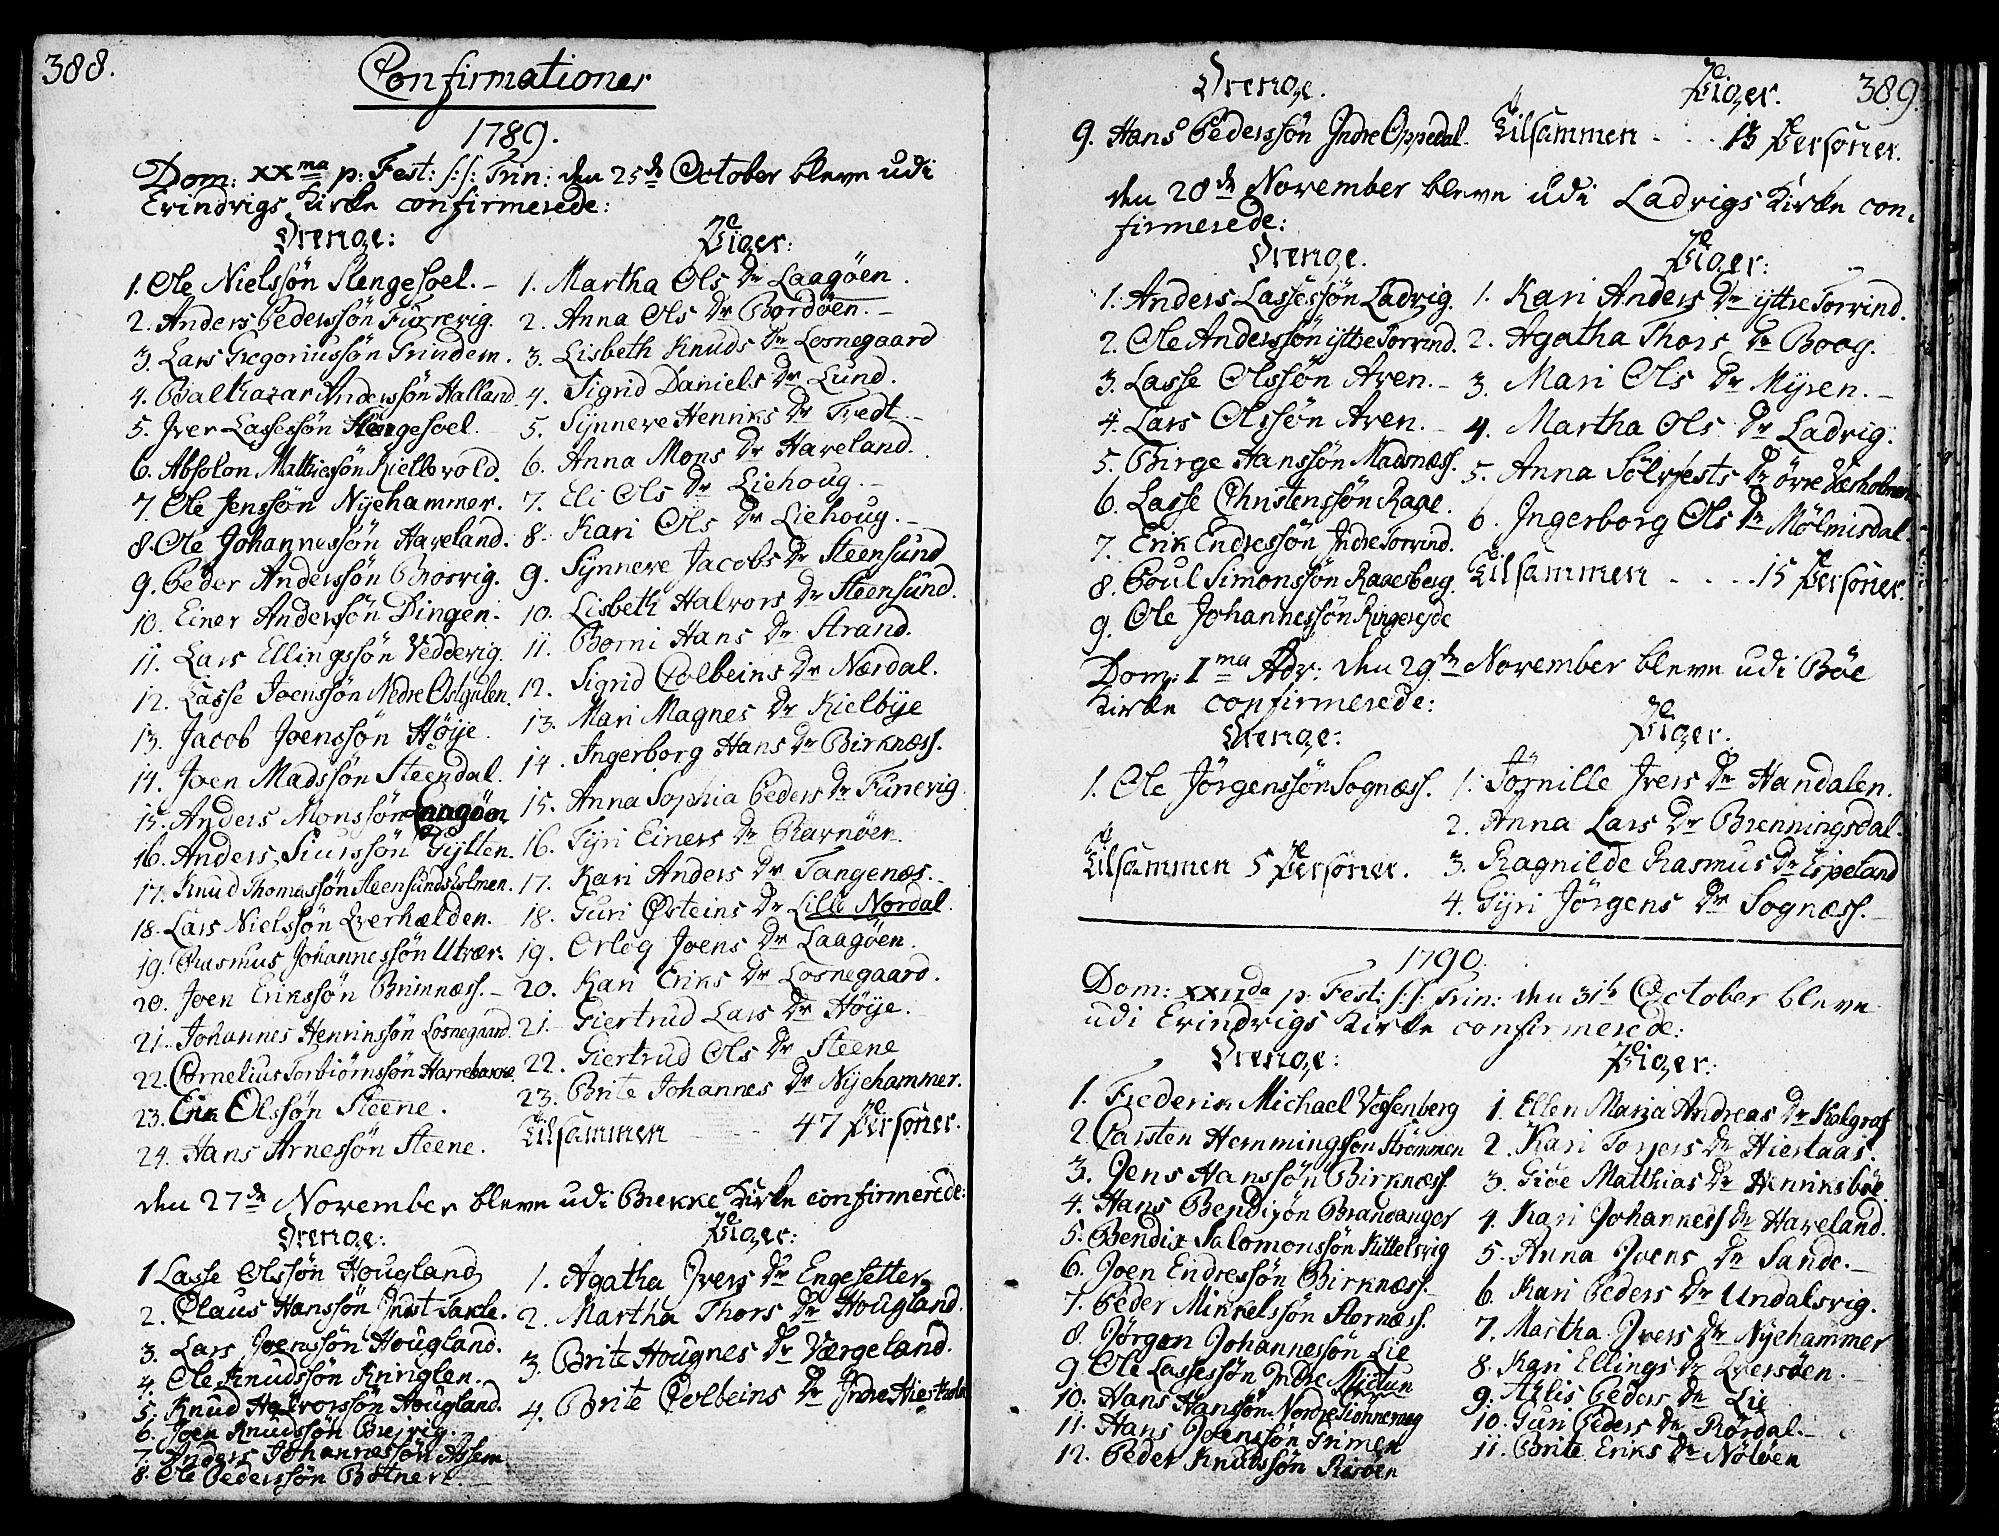 388.
Confirmationer
1789.
Dom: XXma p: Fest: S: S: Trin: den 25de October bleve udi
Evindvigs Kirke confirmerede:
Drenge:
1. Ole Nielssön Slengesoel.
2. Anders Pederssön Furrevig.
3. Lars Gregoriussön Grindem.
4. Balthazar Anderssön Halland.
5. Iver Lassessön Slengesoel.
6. Absolon Mathiessön Kiellevold.
7. Ole Jenssön Nyehammer.
8. Ole Johannessön Haveland.
9. Peder Anderssön Brosvig.
10. Einer Anderssön Dingen.
11. Lars Ellingssön Veddevig.
12. Lasse Joenssön Nedre Østgulen.
13. Jacob Joenssön Höije.
14. Joen Madssön Steendal.
15. Anders Monssön Laagöen
16. Anders Siurssön Gylten.
17. Knud Thomassön Steensundsholmen.
18. Lars Nielssön Qverhælden.
19. Rasmus Johannessön Utvær.
20. Joen Erikssön Brimnæss.
21. Johannes Henrikssön Losnegaard.
22. Cornelius Torbiörnssön Havrebakke.
23. Erik Olssön Steene.
24. Hans Arnessön Steene.
Piger:
1. Martha Ols Dr Laagöen.
2. Anna Ols Dr Bordöen.
3. Lisbeth Knuds Dr Losnegaard
4. Sigrid Daniels Dr Lund.
5. Synneve Henriks Dr Tvedt.
6. Anna Mons Dr Haveland.
7. Eli Ols Dr Liehoug.
8. Kari Ols Dr Liehoug.
9. Synneve Jacobs Dr Steensund
10. Lisbeth Halvors Dr Steensund.
11. Borni Hans Dr Strand.
12. Sigrid Colbeins Dr Nærdal.
13. Mari Magnes Dr Kielbye
14. Ingerborg Hans Dr Birknæss.
15. Anna Sophia Peders Dr Furevig
16. Gyri Einers Dr Ravnöen.
17. Kari Anders Dr Tangenæs.
18. Guri Østeins Dr Lille Nordal.
19. Orlög Joens Dr Laagöen.
20. Kari Eriks Dr Losnegaard.
21. Giertrud Lars Dr Höije.
22. Giertrud Ols Dr Steene
23. Brite Johannes Dr Nyehammer.
Tilsammen 47 Personer.
den 27de November bleve udi Brekke Kirke confirmerede:
Drenge:
1. Lasse Olssön Hougland
2. Claus Hanssön Indst Takle.
3. Lars Joenssön Hougland.
4. Ole Knudssön Knriglen.
5. Knud Halvorssön Hougland.
6. Joen Knudssön Breivig.
7. Anders Johannessön Asem
8. Ole Pederssön Botnen.
Piger:
1. Agatha Ivers Dr Engesetter
2. Martha Thors Dr Hougland.
3. Brite Hougnes Dr Værgeland.
4. Brite Colbeins Dr Indre
389.
Drenge.
9. Hans Pederssön Indre Oppedal.
Piger.
Tilsammen 13 Personer.
den 28de November bleve udi Ladvigs Kirke con-
firmerede:
Drenge.
1. Anders Lassessön Ladvig.
2. Ole Anderssön ijttre Torvind.
3. Lasse Olssön Aven.
4. Lars Olssön Aven.
5. Birge Hanssön Madsnæss.
6. Lasse Christenssön Raae.
7. Erik Endressön Indre Torvind.
8. Poul Simonssön Raaesberg.
9. Ole Johannessön Ringereide
Piger:
1. Kari Anders Dr ijttre Torvind.
2. Agatha Thors Dr Boog.
3. Mari Ols Dr Mijren.
4. Martha Ols Dr Ladvig.
5. Anna Sölvfests Dr övre
6. Ingerborg Ols Dr Mölmisdal.
Tilsammen 15 Personer.
Dom: Ima Adv: den 29de November bleve udi Böe
Kirke confirmerede:
Drenge:
1. Ole Jörgenssön Sognæss.
Tilsammen 5 Personer.
Piger.
1. Törnille Ivers Dr Handalen.
2. Anna Lars Dr Brenningsdal.
3. Ragnilde Rasmus Dr Espeland
4. Gyri Jörgens Dr Sognæss.
1790.
Dom: XXIIda p: Fest: S: S: Trin: den 31te October bleve
udi Evindvigs Kirke confirmerede:
Drenge:
1. Frederik Michael Vessenberg
2. Carsten Hemmingssön Strömmen
3. Jens Hanssön Birknæss
4. Hans Bendixön Brandanger
5. Bendix Salomonssön Kittelsvig
6. Joen Endressön Birknæss.
7. Peder Mikkelssön Stornæss.
8. Jörgen Johannessön Lie
9. Ole Lassessön Indre Mijetun
10. Hans Hanssön Nordre
11. Hans Joenssön Grimen
12. Peder Knudssön Risöen
Piger:
1. Ellen Maria Andreas Dr Kalgraf
2. Kari Toyers Dr Hiertaas.
3. Giöe Matthias Dr Henriksböe.
4. Kari Johanness Dr Haveland.
5. Anna Joens Dr Sande.
6. Kari Peders Dr Undalsvig.
7. Martha Ivers Dr Nyehammer
8. Kari Ellings Dr Qversöen.
9. Aelis Peders Dr Lie
10. Guri Peders Dr Rördal.
11. Brite Eriks Dr Nölöen